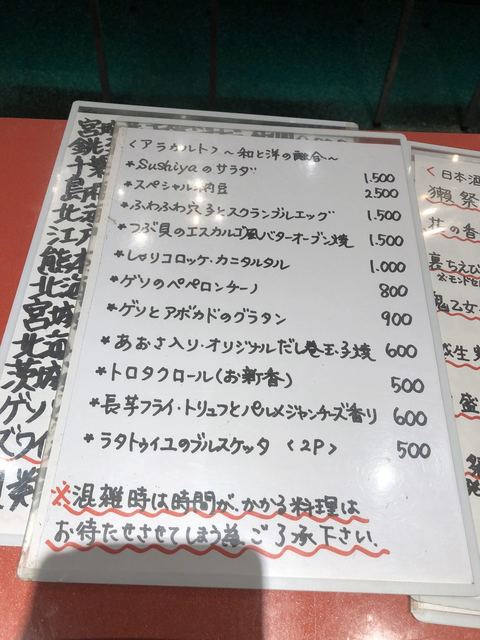 <アラカルト> ~和と洋の融合~
*Sushiyaのサラダ 1.500
*スペシャル納豆 2.500
*ふわふわ穴子とスクランブルエッグ 1.500
*つぶ貝のエスカルゴ風バターオーブン焼 1.500
*しゃリコロッケ・カニタルタル 1.000
*ゲソのペペロンチーノ 800
*ゲソとアボカドのグラタン 900
*あおさ入り・オリジナルだし巻玉子焼 600
*トロタクロール(お新香) 500
*長芋フライ・トリュフとパルメジャンチーズ香り 600
*ラタトゥイユのブルスケッタ <2P> 500
※混雑時は時間が、かかる料理は
お待たせさせてしまう為ご了承下さい.
宮城
銚
千葉
北海
江戸
熊本
北海道
宮城
北海
茨城
ゲソ
ズワイ
<日本酒
獺祭
裏ちえび
鬼乙女